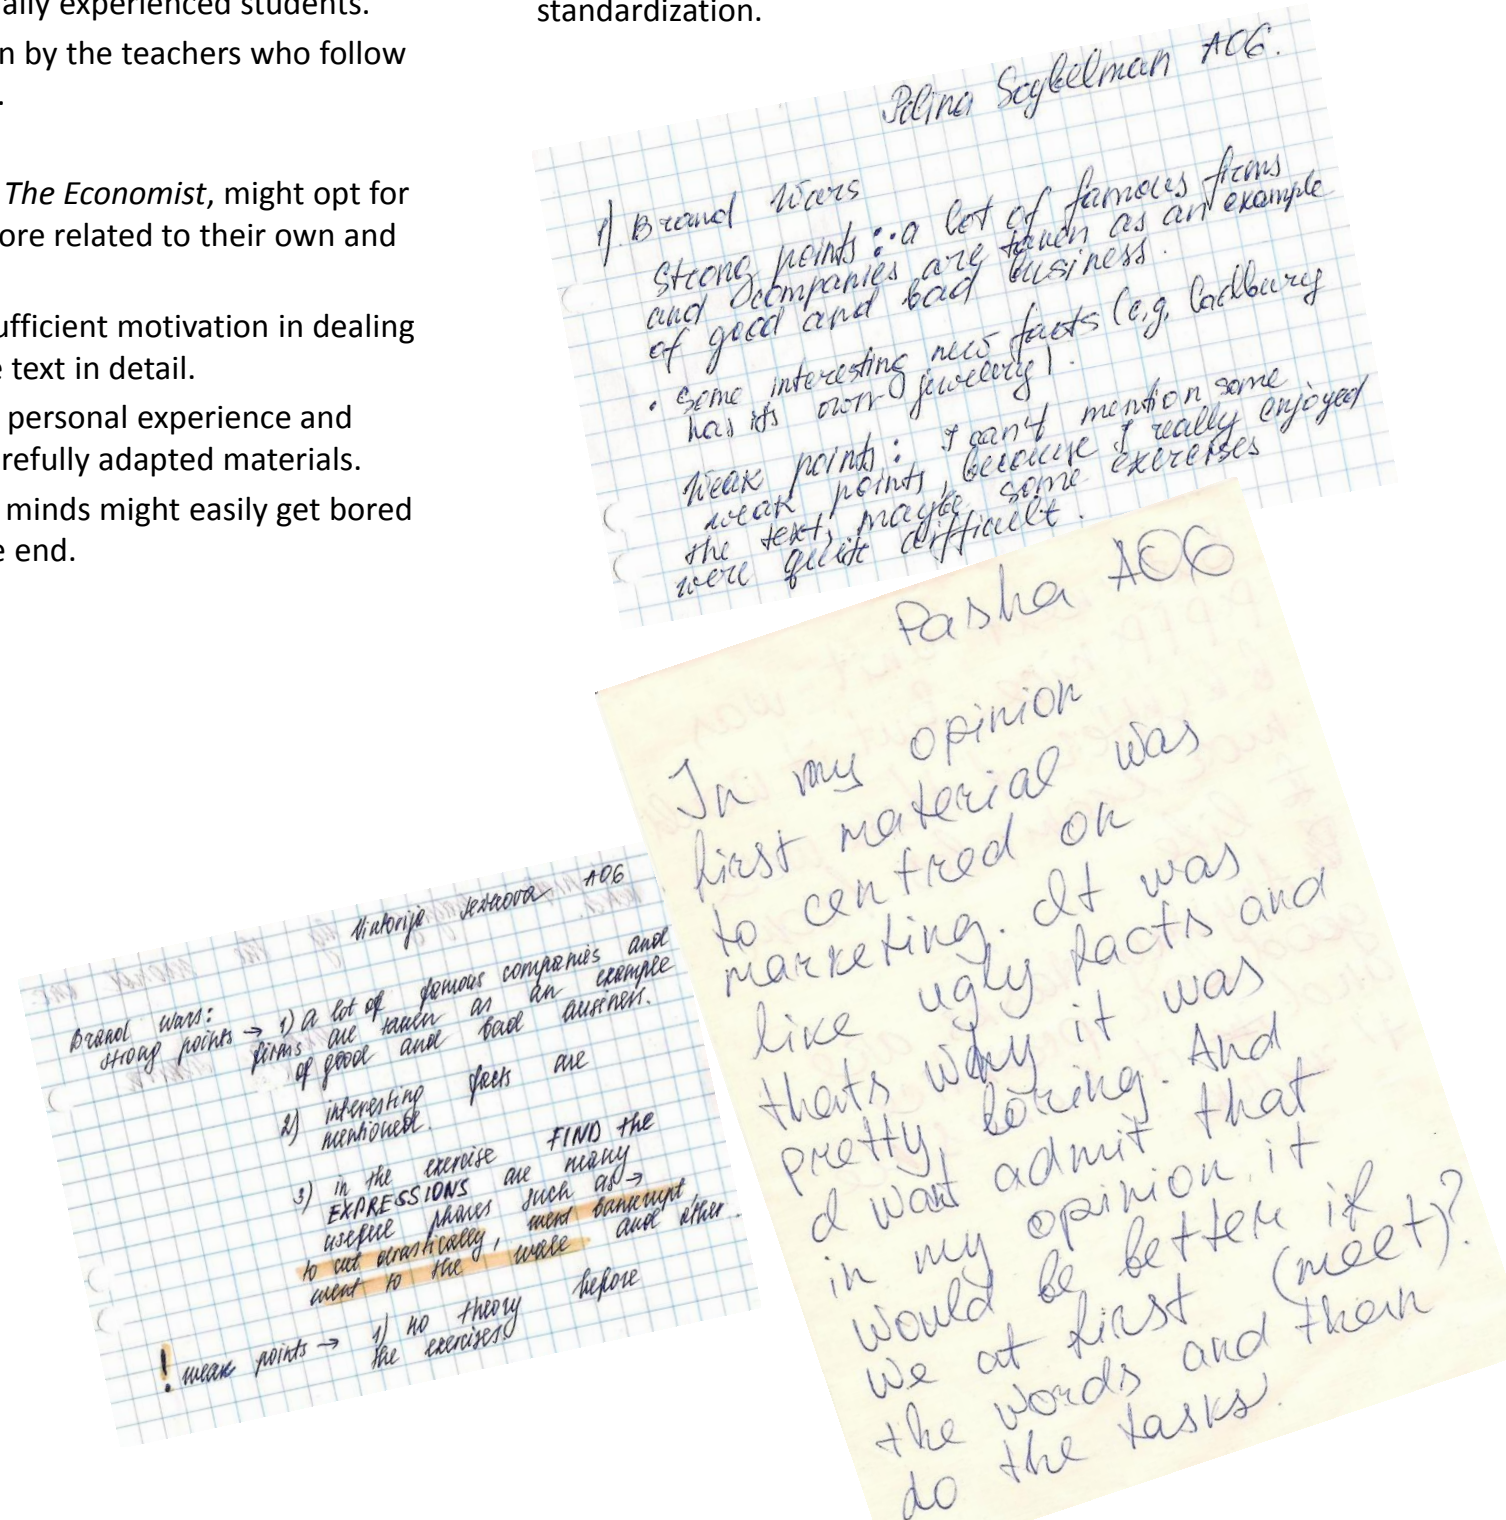 ally experienced students.
n by the teachers who follow
.
The Economist, might opt for
ore related to their own and
ufficient motivation in dealing
e text in detail.
personal experience and
refully adapted materials.
minds might easily get bored
e end.
standardization.
A06.
1). Brand Wars
strong points : • a lot of famous firms
and companies are taken as an example
of good and bad business.
• some interesting new facts (e.g. Cadbury
has its own jewelery).
Weak points : I can't mention some
weak points, because I really enjoyed
the text, maybe some exercises
were quite difficult.
Pasha A06
In my opinion
first material was
to centred on
marketing. It was
like ugly facts and
thats why it was
pretty boring. And
I want admit that
in my opinion, it
would be better if
we at first (meet)?
the words and then
do the tasks.
Viktorija A06
Brand wars:
strong points → 1) A lot of famous companies and
firms are taken as an example
of good and bad business.
2) interesting facts are
mentioned.
3) in the exercise FIND the
EXPRESSIONS are many
useful phases such as →
to cut drastically, went bankrupt
went to the and other.
! weak points → 1) no theory before
the exercises